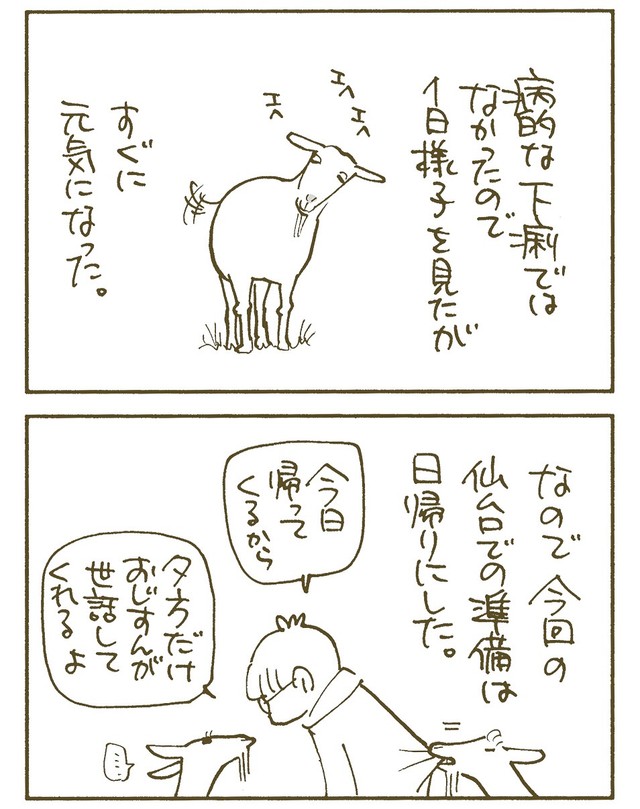 病的な下痢では
なかったので
1日様子を見たが
エヘ
エヘ
エヘ
すぐに
元気になった。
なので今回の
仙台での準備は
日帰りにした。
今日
帰って
くるから
夕方だけ
おじすんが
世話して
くれるよ